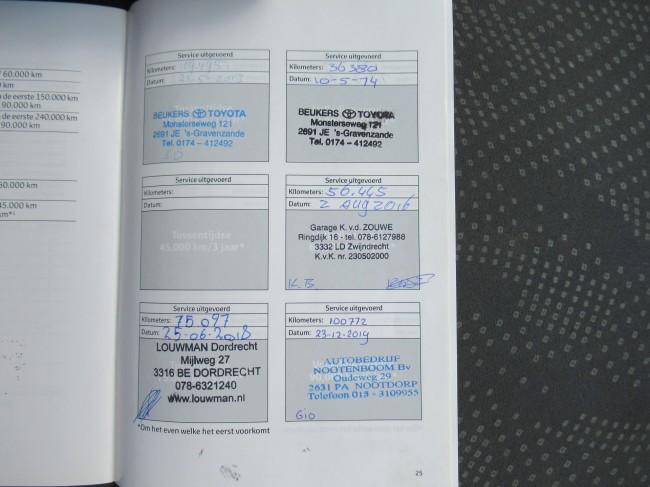 60.000 km
0 km
de eerste 150.000 km
90.000 km
de eerste 240.000 km
90.000 km
60.000 km
45.000 km
Service uitgevoerd
Kilometers:
Datum:
BEUKERS TOYOTA
Monsterseweg 121
2691 JE 's-Gravenzande
Tel. 0174 - 412492
Service uitgevoerd
Kilometers: 36380
Datum: 10-5-'14
BEUKERS TOYOTA
Monsterseweg 121
2691 JE 's-Gravenzande
Tel. 0174 - 412492
Service uitgevoerd
Kilometers:
Datum:
Tussentijdse
45.000 km/3 jaar*
Service uitgevoerd
Kilometers: 56.445
Datum: 2 AUG 2016
Garage K. v.d. ZOUWE
Ringdijk 16 - tel. 078-6127988
3332 LD Zwijndrecht
K.v.K. nr. 230502000
Service uitgevoerd
Kilometers: 75.097
Datum: 25-06-2018
LOUWMAN Dordrecht
Mijlweg 27
3316 BE DORDRECHT
078-6321240
www.louwman.nl
Service uitgevoerd
Kilometers: 100772
Datum: 23-12-2019
AUTOBEDRIJF
NOOTENBOOM Bv
Oudeweg 29
2631 PA NOOTDORP
Telefoon 015 - 3109955
Gio
*Om het even welke het eerst voorkomt
25